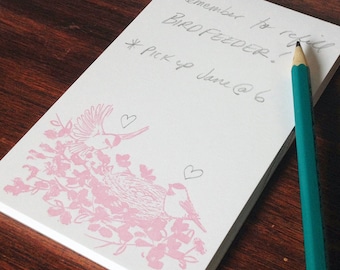 Remember to refill
BIRDFEEDER.
* Pick up Jane @ 6